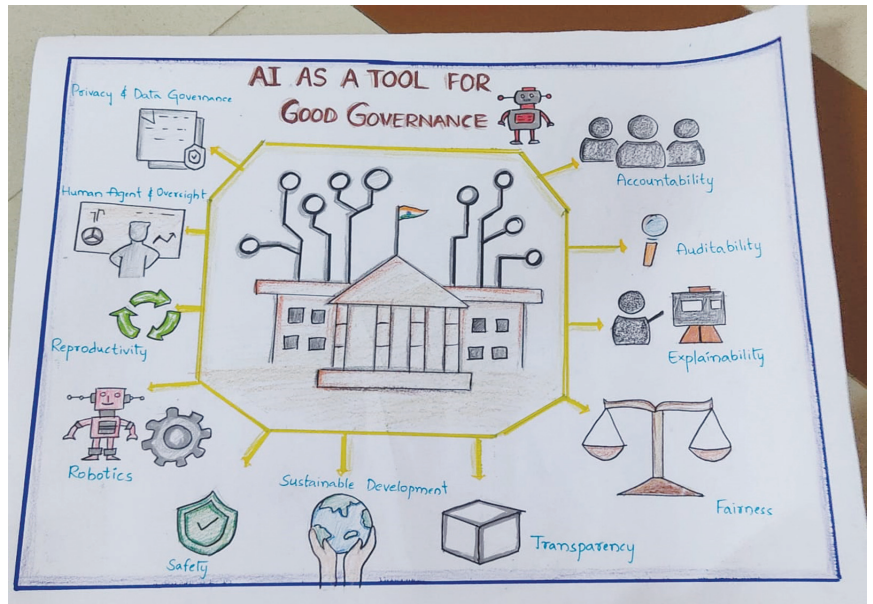 AI AS A TOOL FOR
GOOD GOVERNANCE
Privacy & Data Governance
Human Agent & Oversight
Reproductivity
Robotics
Safety
Sustainable Development
Transparency
Fairness
Explainability
Auditability
Accountability